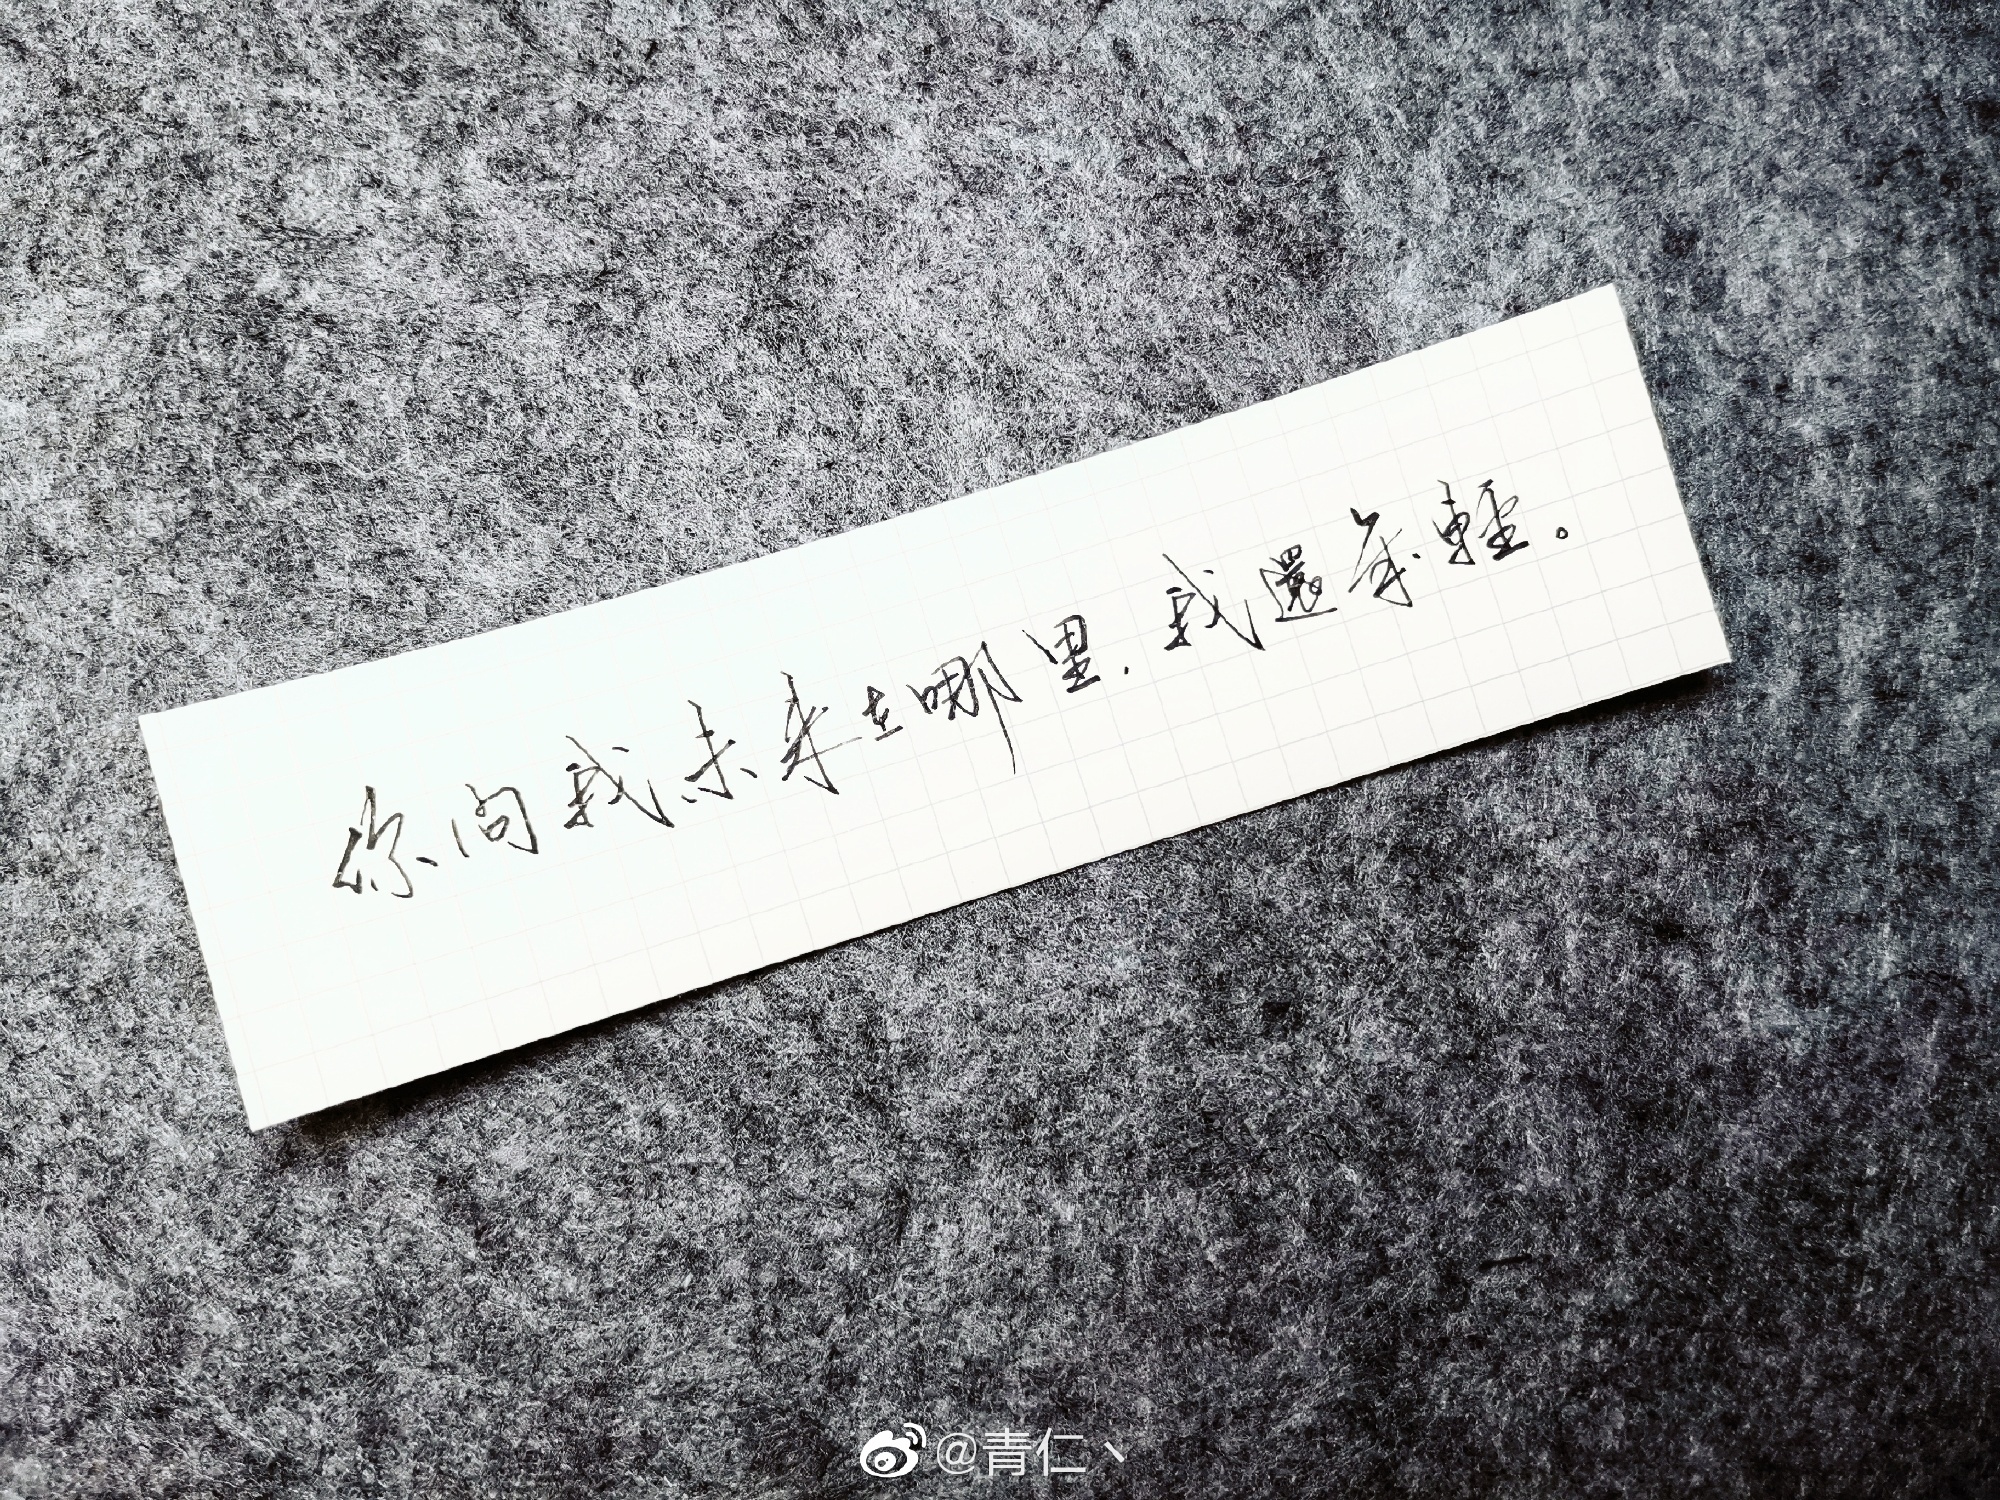 你问我未来在哪里，我還年輕。
@青仁丶